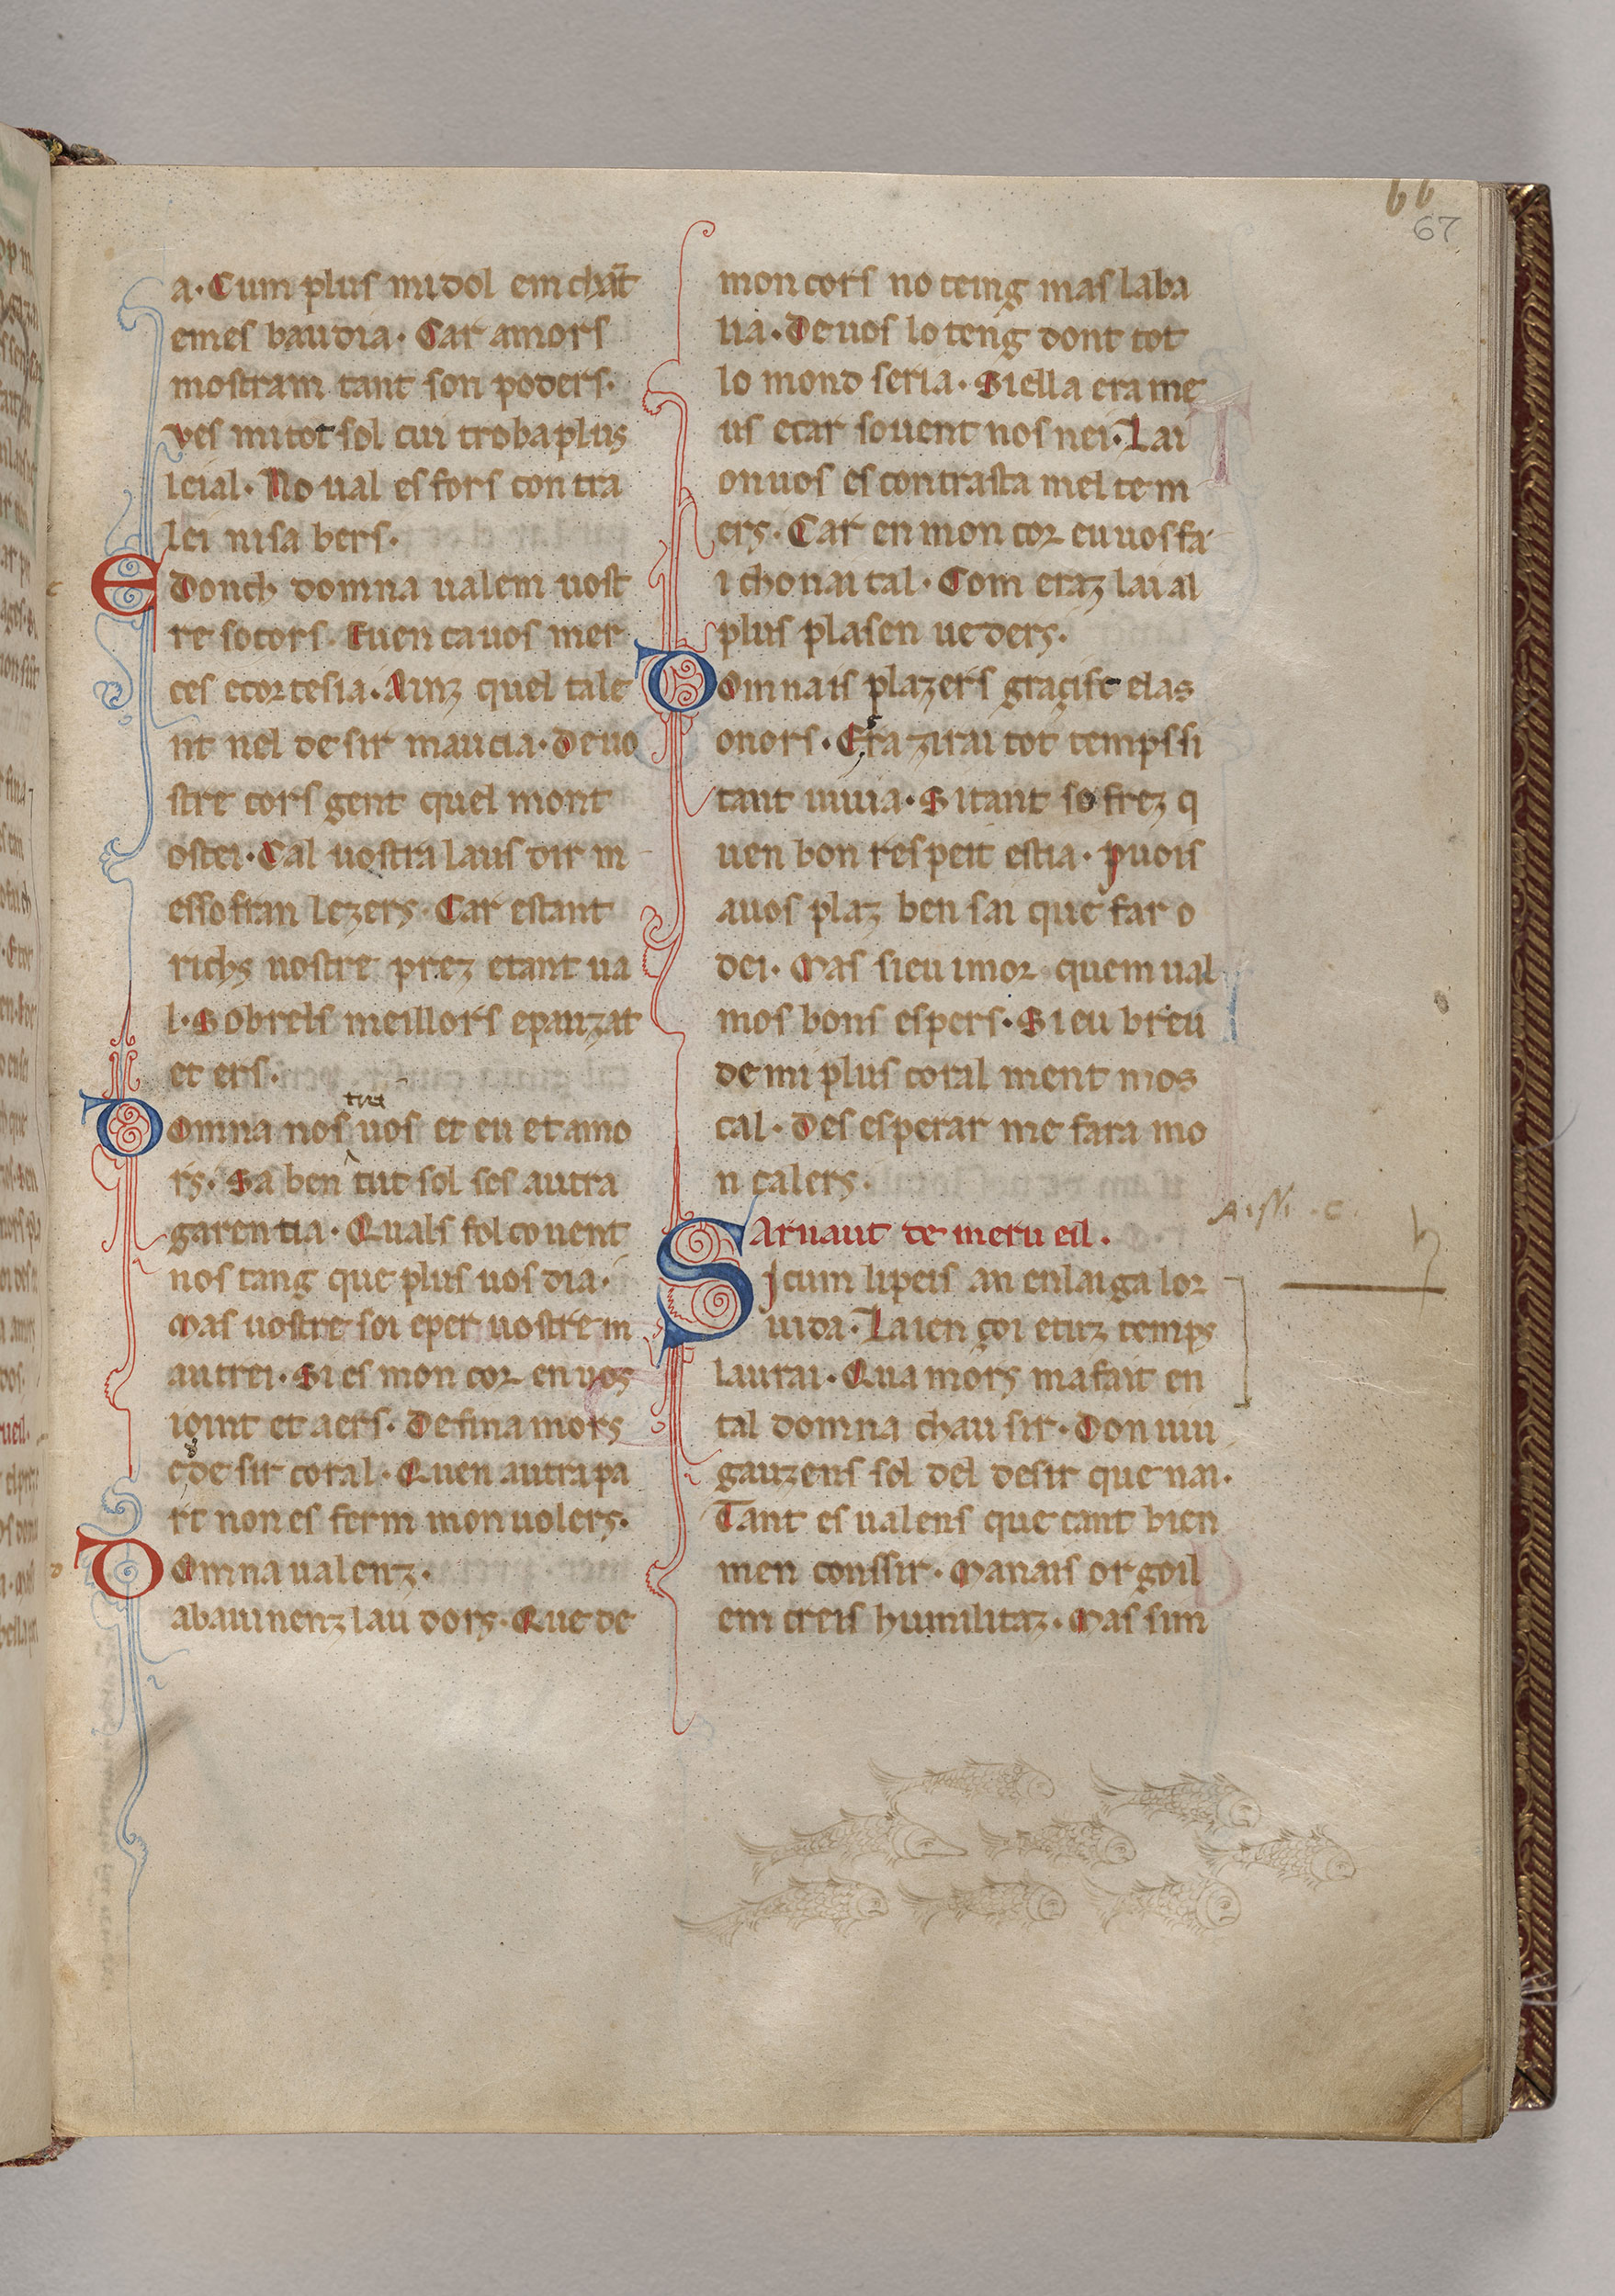 66
67
a. Cum plus mi dol em chãt
emes baudia. Car amors
mostram tant son poders.
ves mi tot sol cui troba plus
leial. No val esfors contra
lei ni sa bers.
E donch domna valem vost
re socors. Euen ca vos mer
ces e cortesia. Ainz quel tale
nt nel desir maucia. De uo
stre cors gent quel mont
ostei. Cal uostra laus dir m
essofran lezers. Car es tant
richs uostre prez e tant ua
l. Sobrels meillors e pauzat
et ers.
tra
Domna nos uos et eu et amo
rs. Sa ben tut sol ses autra
garentia. Quals fol couent
nos tang que plus uos dia.
Mas uostre soi e per uostre m
autrei. Si es mon cor en uos
ioint et aers. De fin amors
e de sir coral. Quen autra pa
rt non es ferm mon uolers.
Domna ualenz.
ab auinenz lau dors. Que de
mon cors no teing mas la ba
lia. De uos lo teng dont tot
lo mond seria. Si ella era me
us et ar souent nos nei. Lai
on uos es contrasta mel tem
ers. Car en mon cor eu uos fa
i chonai tal. Com eraz lai al
plus plasen ueders.
Domnais plazers gracisc e las
onors. Era zirai tot temps si
tant uiuia. Si tant sofrez q
uen bon respeit estia. Puois
a uos plaz ben sai que far o
dei. Mas sieu i mor quem ual
mos bons espers. Si eu breu
de mi plus coral ment nos
cal. Des esperar me fara mo
n calers.
Arnaut de meru eil.
Si cum li peis an en laiga lor
uida. Lai en ioi e tuz temps
laurai. Qua mors ma fait en
tal domna chau sir. Don uiu
gauzens sol del desir que nai.
Tant es ualens que cant bien
men conssir. Manais orgoil
em creis humilitaz. Mas sim